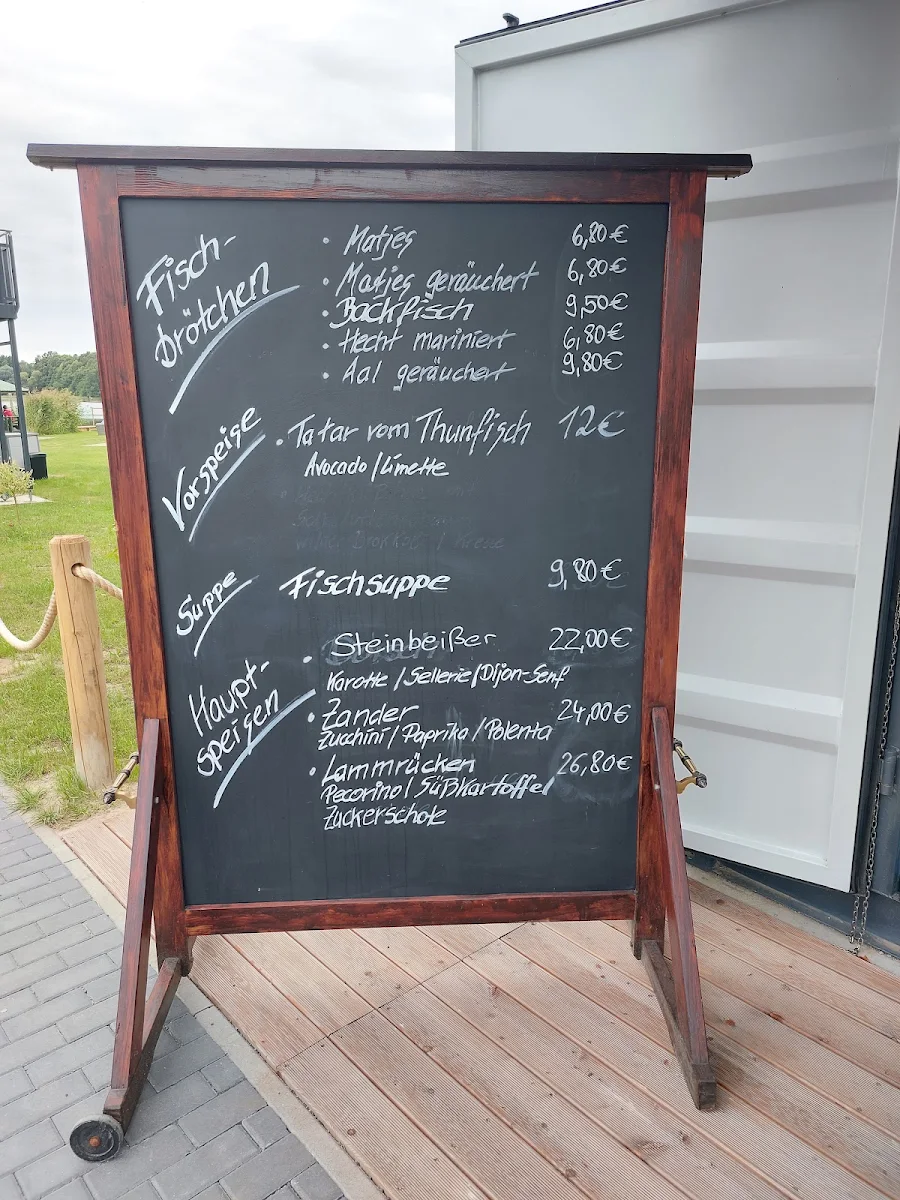 Fisch-
brötchen
• Matjes 6,80€
• Matjes geräuchert 6,80€
• Backfisch 9,50€
• Hecht mariniert 6,80€
• Aal geräuchert 9,80€
Vorspeise
• Tatar vom Thunfisch 12€
Avocado / Limette
Suppe
Fischsuppe 9,80€
Haupt-
speisen
• Steinbeißer 22,00€
Karotte / Sellerie / Dijon-Senf
• Zander 24,00€
Zucchini / Paprika / Polenta
• Lammrücken 26,80€
Pecorino / Süßkartoffel
Zuckerschote